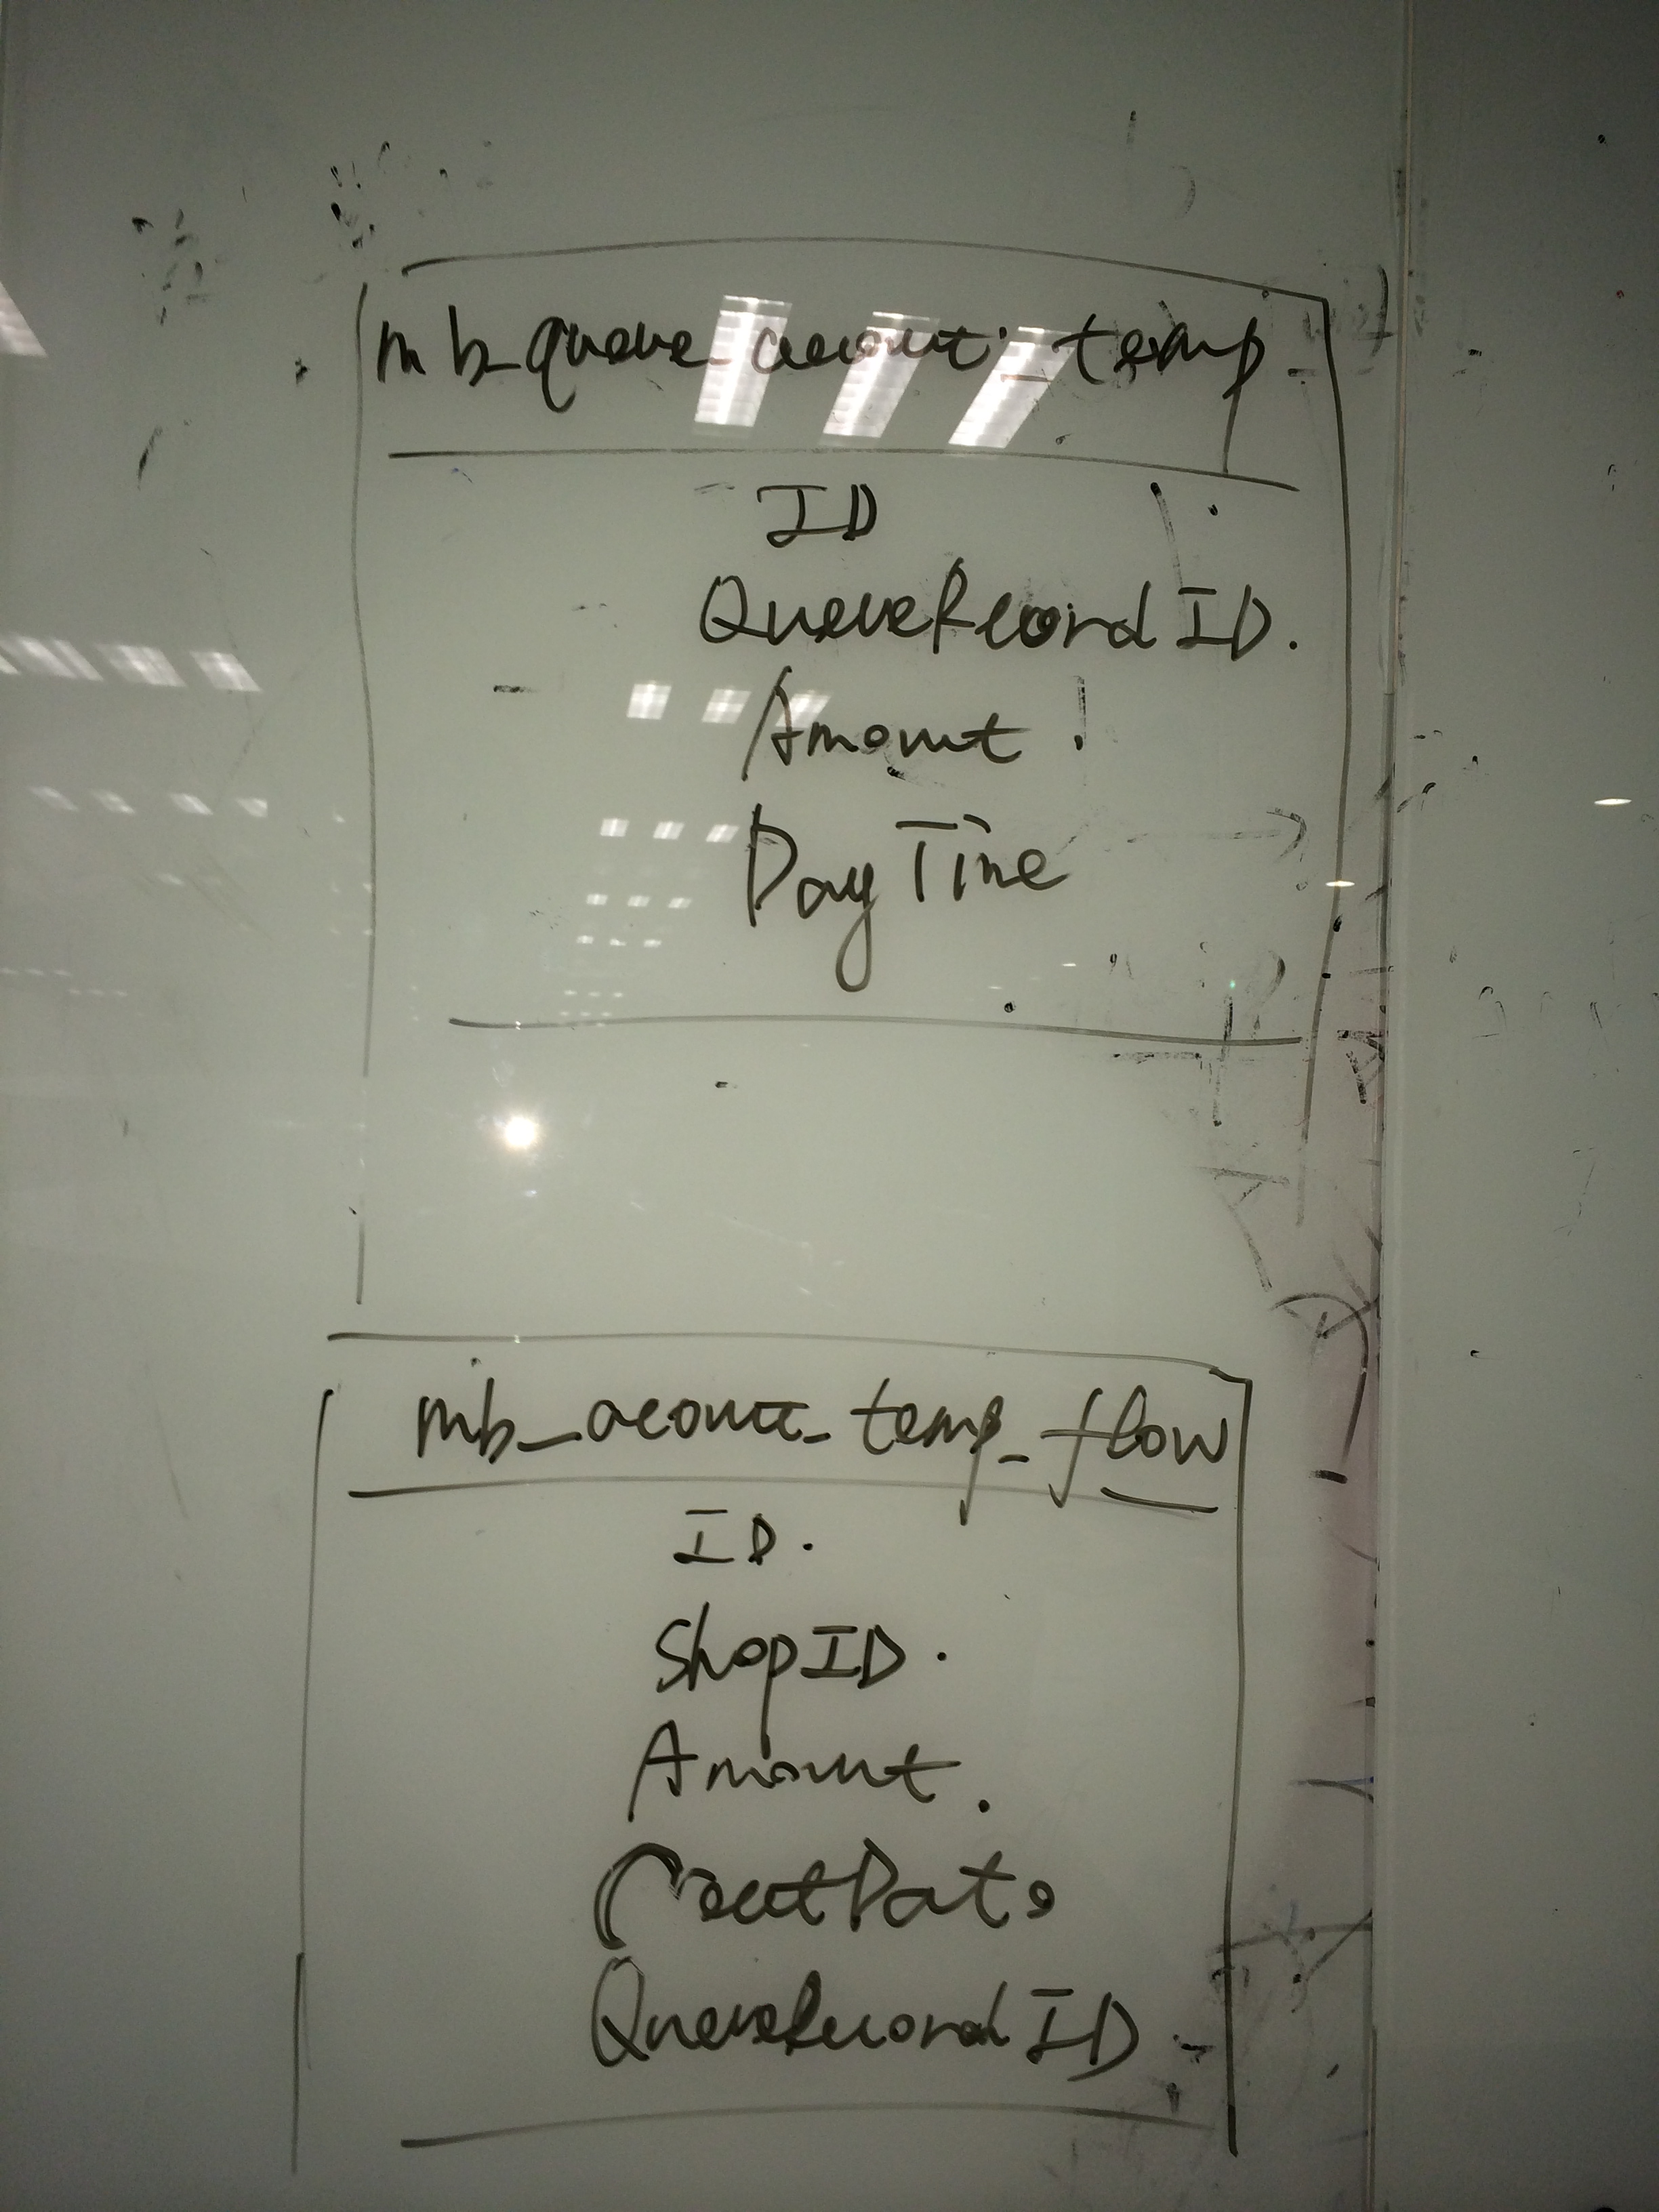 mb_queue_acount_temp
ID
QueueRecordID.
Amount.
DayTime
mb_acount_temp_flow
ID.
ShopID.
Amount.
CreatDate
QueueRecordID